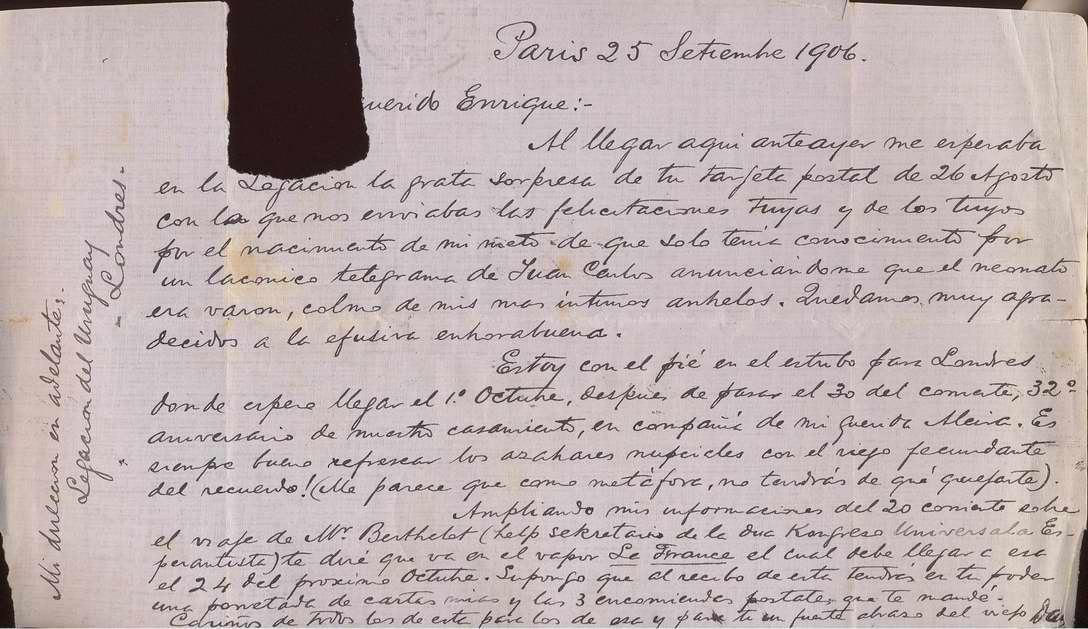 Paris 25 Setiembre 1906.
uerido Enrique:-
Al llegar aqui anteayer me esperaba
en la Legacion la grata sorpresa de tu tarjeta postal de 26 Agosto
con la que nos enviabas las felicitaciones tuyas y de los tuyos
por el nacimiento de mi nieto de que solo tenia conocimiento por
un laconico telegrama de Juan Carlos anunciándome que el neonato
era varon, colmo de mis mas íntimos anhelos. Quedamos muy agra-
decidos a la efusiva enhorabuena.
Estoy con el pié en el estribo para Londres
donde espero llegar el 1.º Octubre, despues de pasar el 30 del corriente, 32º
aniversario de nuestro casamiento, en compañía de mi querida Alcira. Es
siempre bueno refrescar los azahares nupciales con el riego fecundante
del recuerdo! (Me parece que como metáfora, no tendrás de qué quejarte).
Ampliando mis informaciones del 20 corriente sobre
el viaje de Mr. Berthelot (help sekretario de la dua Kongreso Universala Es-
perantista) te diré que va en el vapor La France el cual debe llegar a esa
el 24 del proximo Octubre. Supongo que al recibo de esta tendrás en tu poder
una porretada de cartas mias y las 3 encomiendas postales que te mandé.
Cariños de todos los de esta para los de esa y para ti un fuerte abrazo del viejo
Mi direccion en adelante:
Legacion del Uruguay
- Londres -